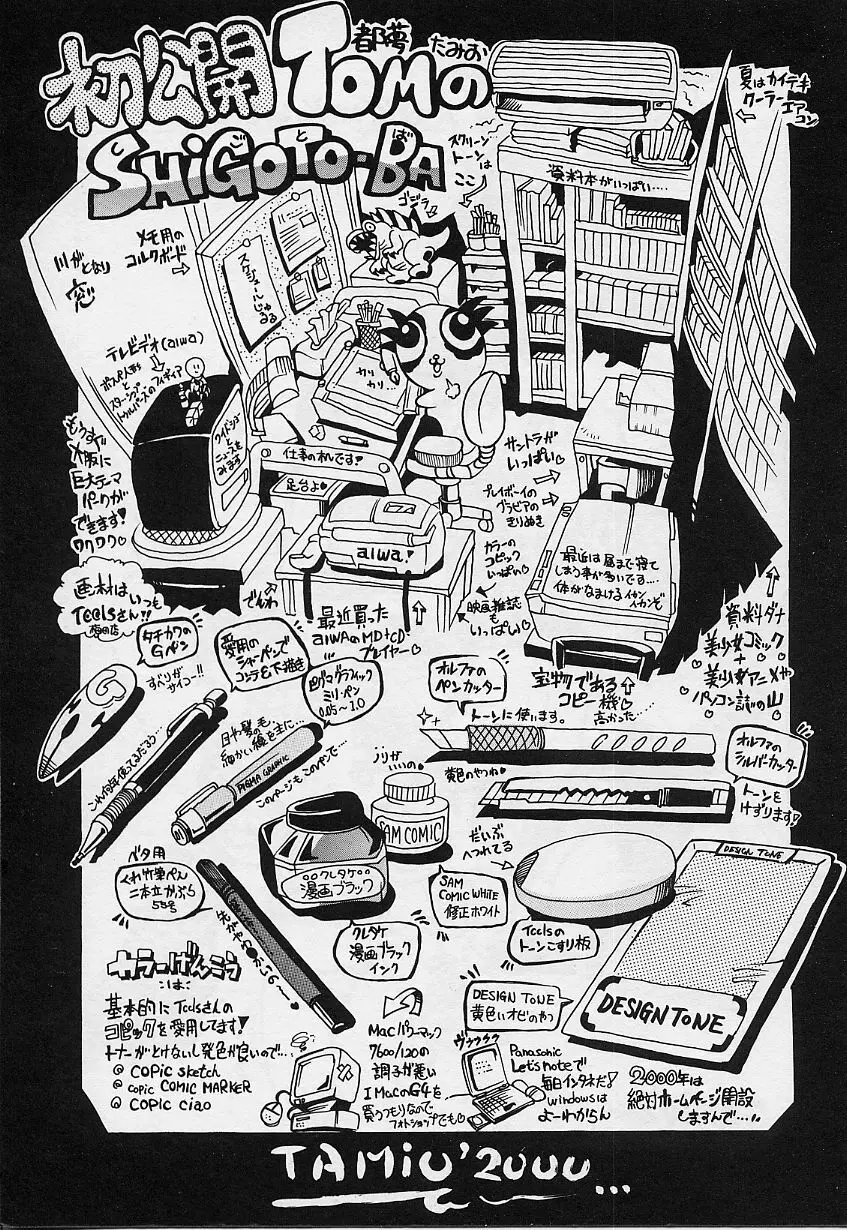 初公開 TOMの
都夢 たみお
SHiGOTO-BA
しごとば
夏はカイテキ
クーラーエアコン
スクリーン
トーンは
ココ
資料本がいっぱい…
ゴジラ
メモ用の
コルクボード
川がとなり
窓
スケジュールじゅるる
テレビデオ(aiwa)
カリカリ…
クイズショー
と
ニュースを
みまする
もうすぐ
大阪に
巨大テーマ
パークが
できます!
ワクワク♡
仕事の机です!
足台よ♡
サントラが
いっぱい♡
プレイボーイの
グラビアの
きりぬき
カラーの
コピック
いっぱい♡
映画雑誌も
いっぱい♡
aiwa!
最近買った
aiWAのMD+CD
プレイヤー♡
でんわ
最近は昼まで寝て
しまう事が多いでる…
体がなまけるイカン
イカンぞ
宝物である
コピー機♡
高かった…
資料ダナ
美少女コミック
+
美少女アニメや
パソコン誌の山
画材はいつも
Toolsさん!!
梅田店
タチカワの
Gペン
すべりが
サイコー!!
G
愛用の
シャーペンで
ゴシゴシ下描き
こんな何年使ってるだろう…
ピグマグラフィック
ミリペン
0.05〜1.0
目や髪の毛、
細かい線を主に…
PIGMA GRAPHIC
このページもこのペンで…
オルファの
ペンカッター
トーンに使います。
黄色のやつね♡
オルファの
シルバーカッター
トーンを
けずります!
ノリが
いいの♡
SAM COMIC
SAM
COMIC WHITE
修正ホワイト
クレタケ
漫画ブラック
クレタケ
漫画ブラック
インク
だいぶ
へっれてる
Toolsの
トーンこすり板
DESIGN TONE
DESIGN TONE
DESIGN TONE
黄色いオビのやつ
ベタ用
くれ竹筆ぺん
二本立かぶら
55号
カラーげんこう
は
基本的にToolsさんの
コピックを愛用してます!
トナーがとけないし発色が良いので…
@ COPiC sketch
@ COPiC COMIC MARKER
@ COPIC ciao
Macパワーマック
7600/120の
調子が悪い
I MacのG4を
買うつもりなので
フォトショップでも♡
ヴゥゥゥゥ
Panasonic
Let's noteで
毎日インタネだ!
windowsは
よーわからん
2000年は
絶対ホームページ開設
しますんで……
TAMiO '2000...